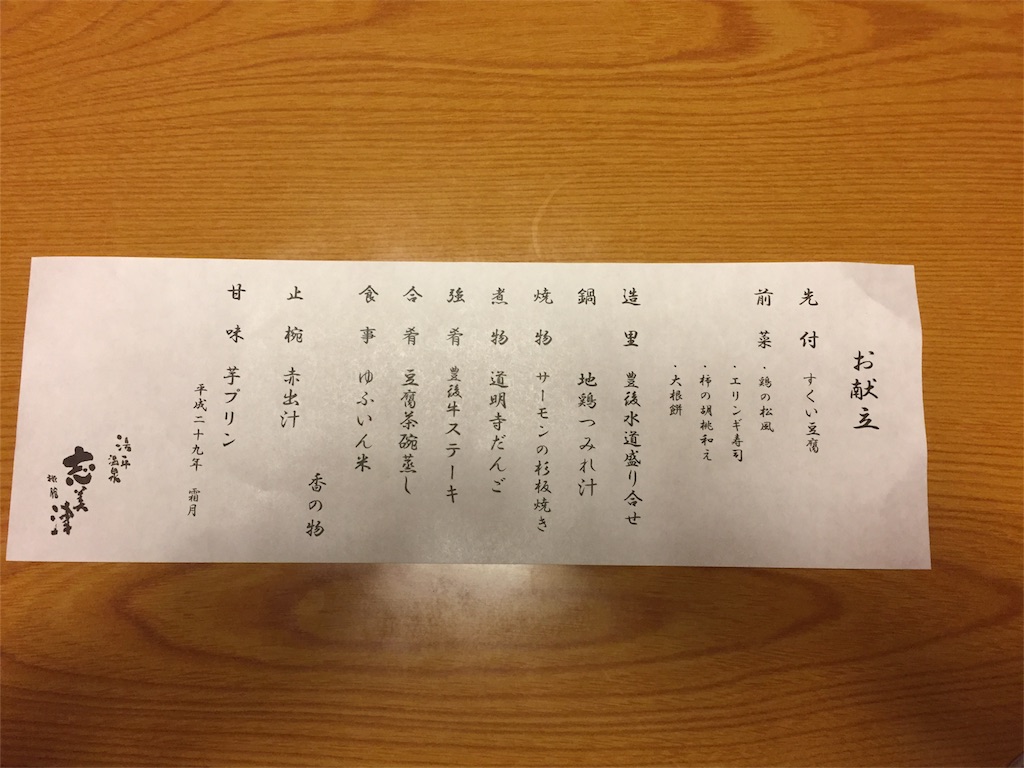 お献立
先付 すくい豆腐
前菜 ・鶏の松風
・エリンギ寿司
・柿の胡桃和え
・大根餅
造里 豊後水道盛り合せ
鍋 地鶏つみれ汁
焼物 サーモンの杉板焼き
煮物 道明寺だんご
強肴 豊後牛ステーキ
合肴 豆腐茶碗蒸し
食事 ゆふいん米
香の物
止椀 赤出汁
甘味 芋プリン
平成二十九年 霜月
湯平温泉
志美津
旅館